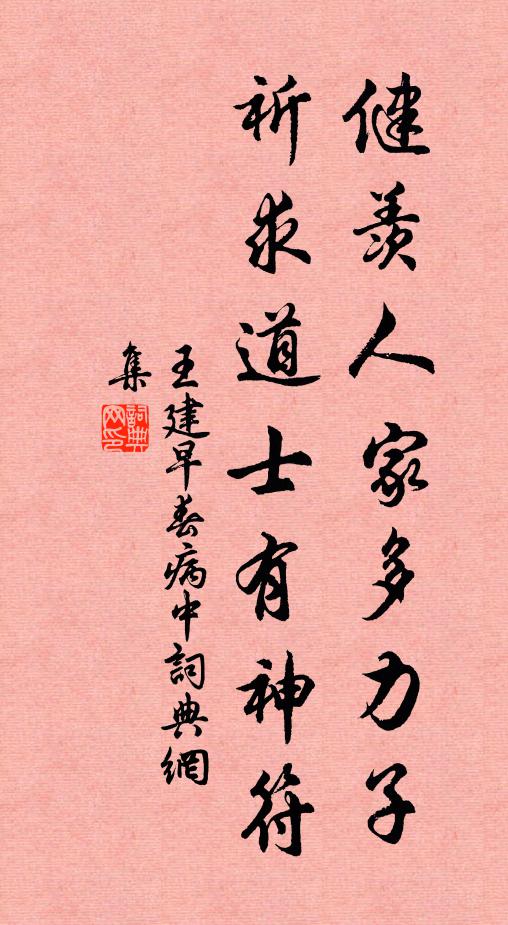 健羨人家多力子
祈求道士有神符
王建早春病中詞典網
集
詞典
网印